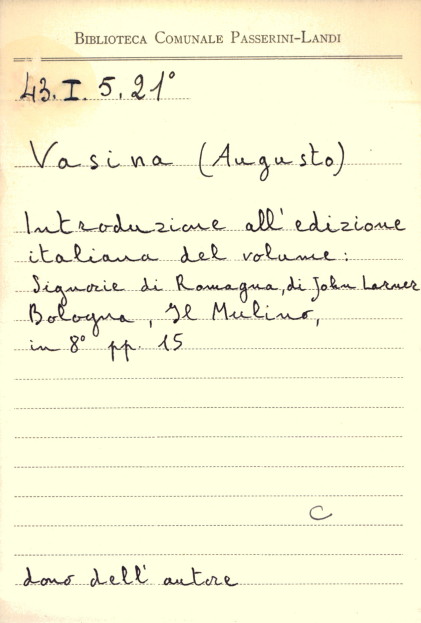 BIBLIOTECA COMUNALE PASSERINI-LANDI
43. I. 5. 21°
Vasina (Augusto)
Introduzione all'edizione
italiana del volume:
Signorie di Romagna, di John Larner
Bologna, Il Mulino,
in 8° pp. 15
C
dono dell'autore